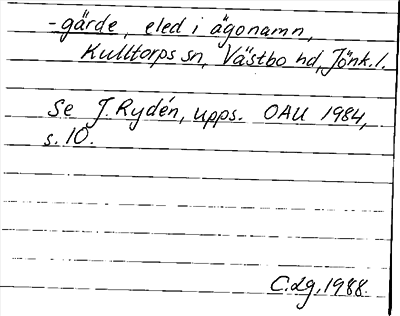 -gärde, eled i ägonamn,
Kulltorps sn, Västbo hd, Jönk. l.
Se J. Rydén, upps. OAU 1984,
s. 10.
C. Lg. 1988.